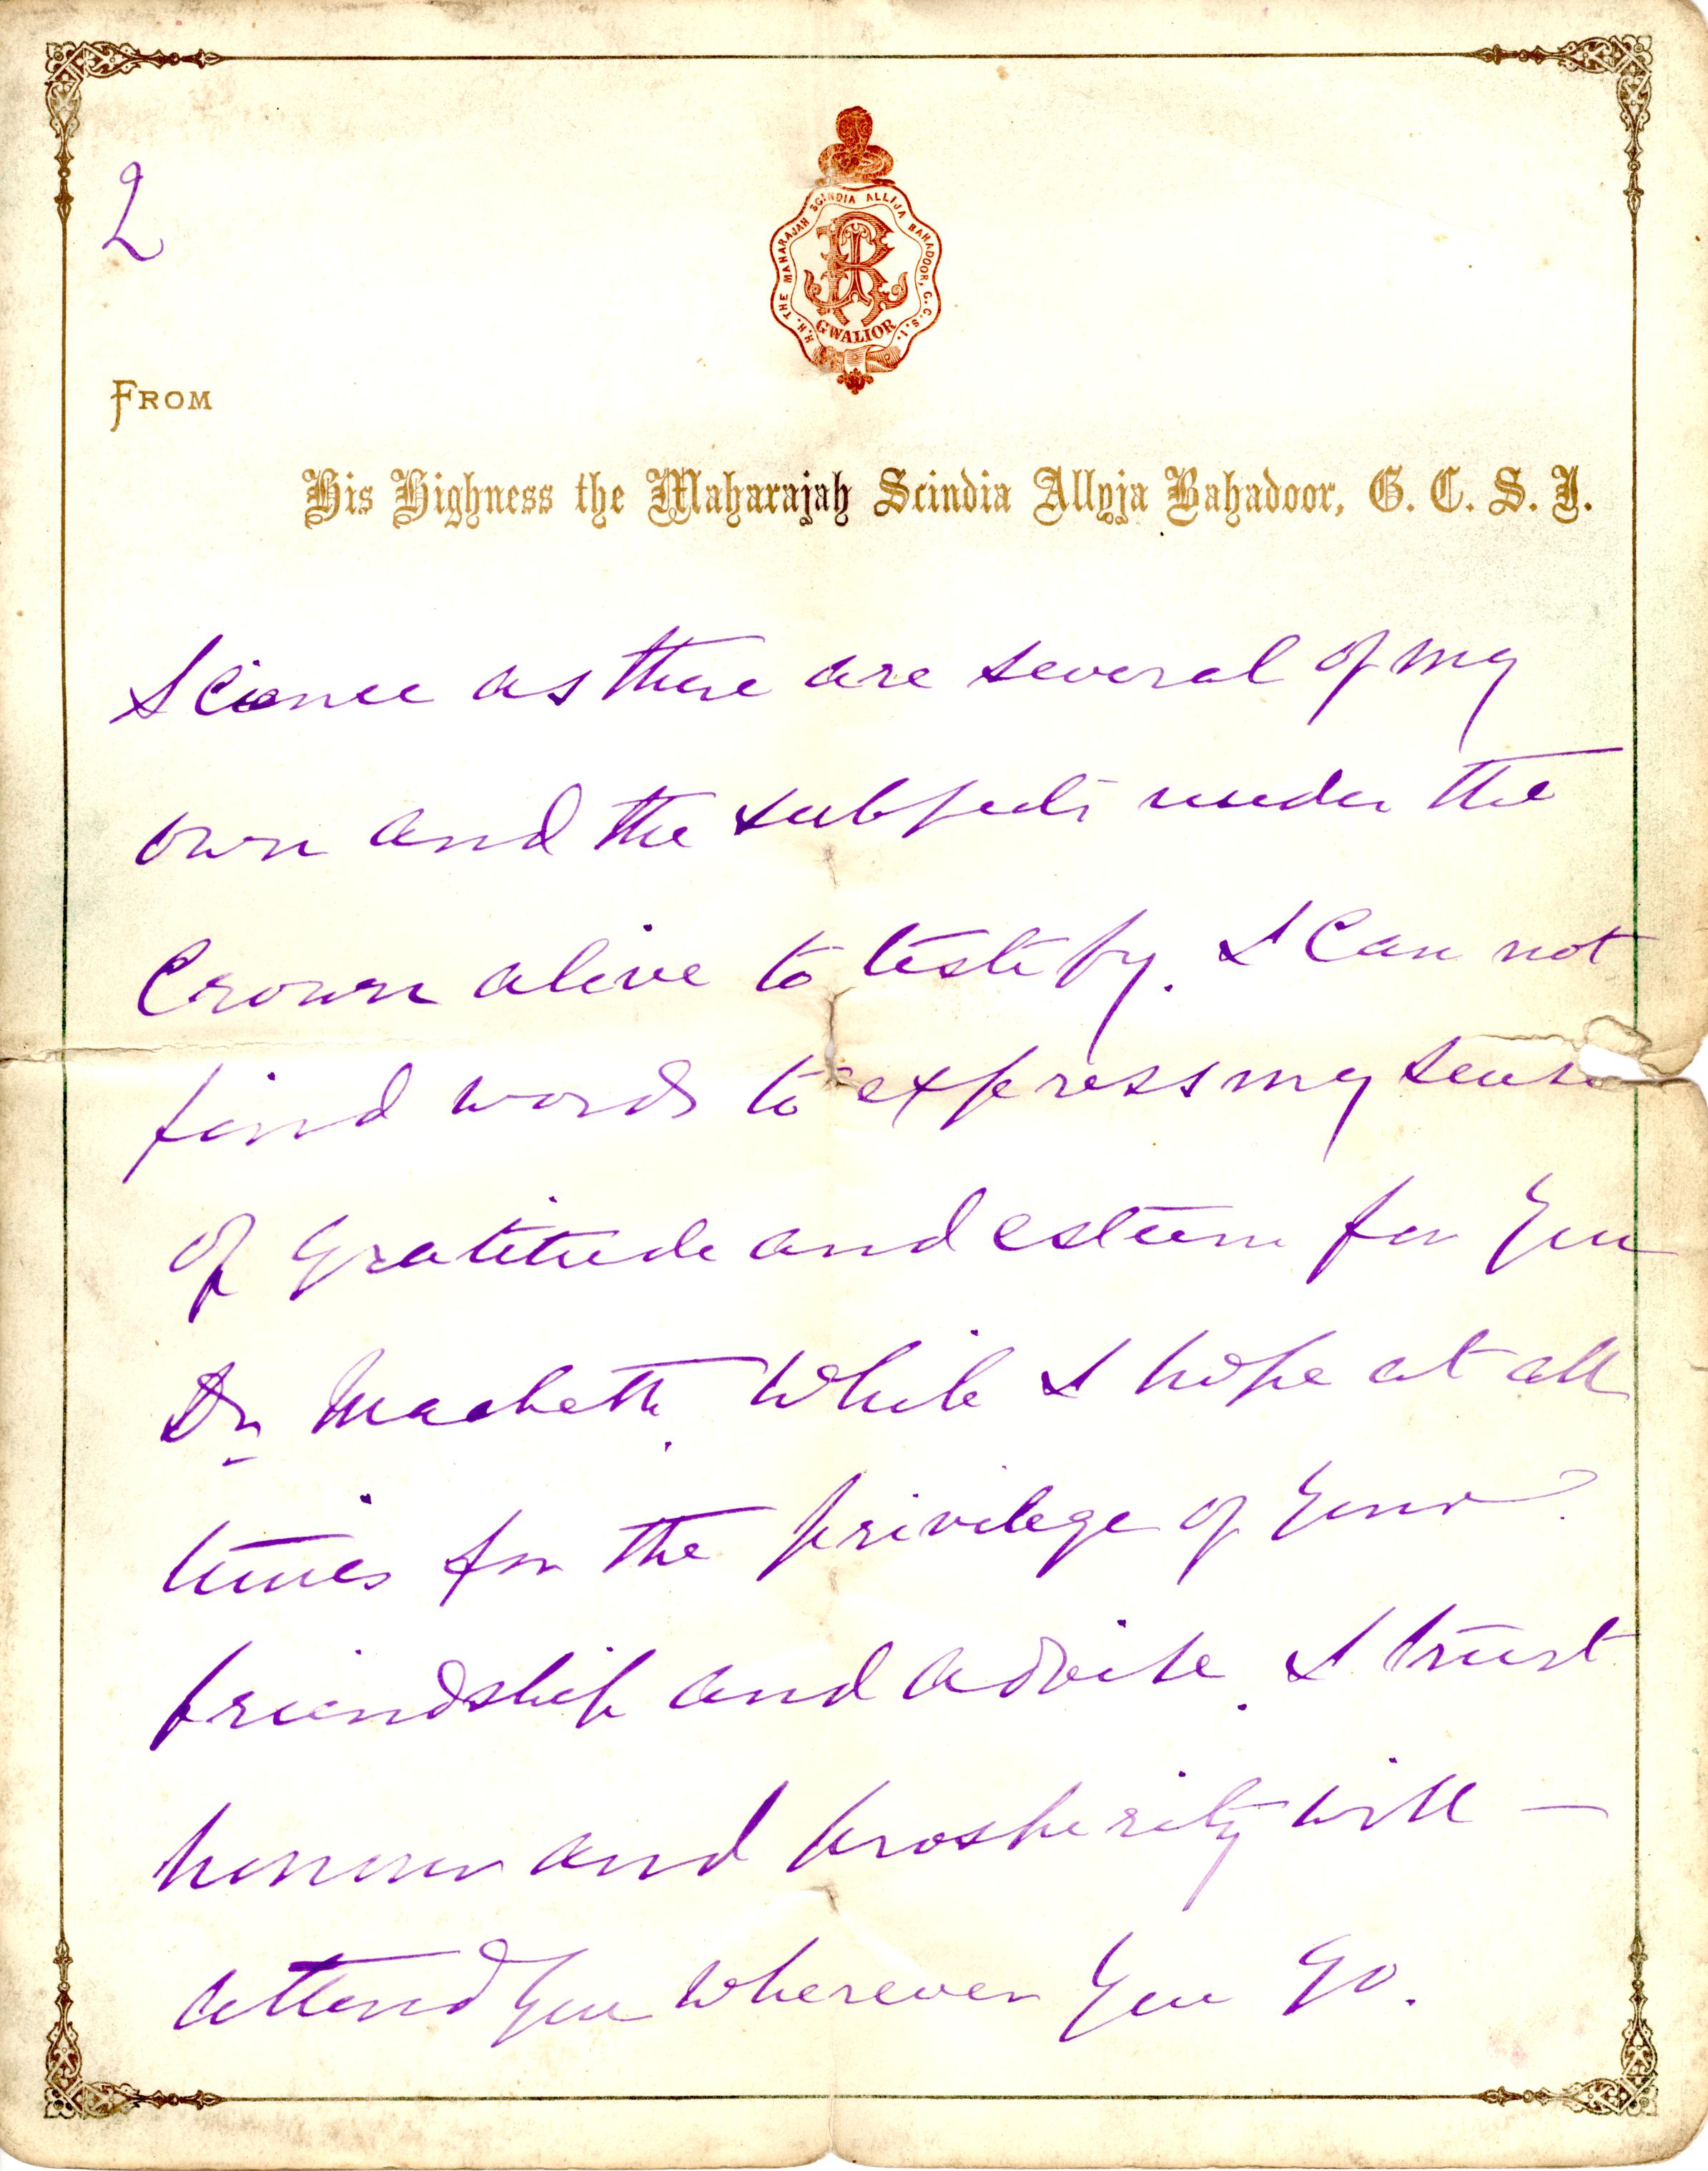 2
H.H. THE MAHARAJAH SCINDIA ALLIJA BAHADOOR, G.C.S.I.
GWALIOR
FROM
His Highness the Maharajah Scindia Allyja Bahadoor, G. C. S. I.
Science as there are several of my
own and the subjects under the
Crown alive to testify. I can not
find words to express my sense
of gratitude and esteem for you
Dr Macbeth. While I hope at all
times for the privilege of your
friendship and advise. I trust
honour and prosperity will —
attend you wherever you go.